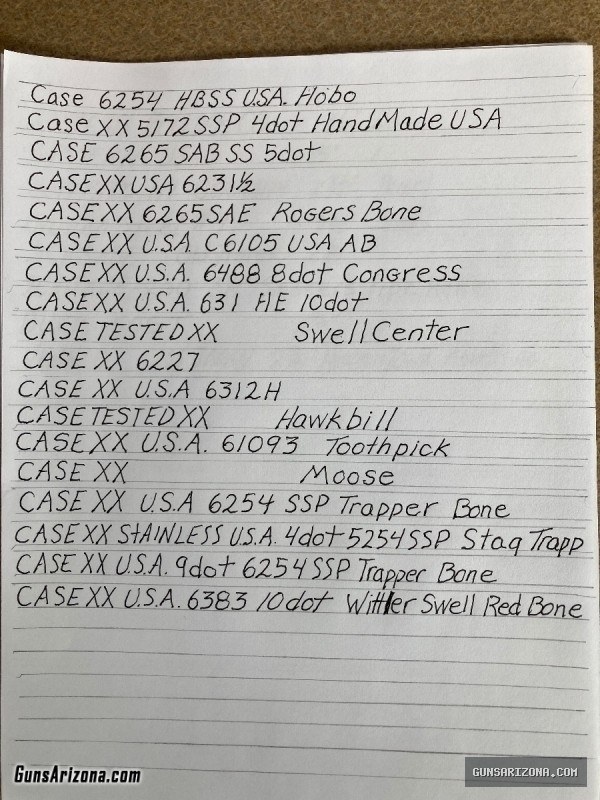 Case 6254 HBSS U.S.A. Hobo
Case XX 5172 SSP 4dot Hand Made USA
CASE 6265 SAB SS 5dot
CASE XX USA 6231½
CASE XX 6265 SAE Rogers Bone
CASE XX U.S.A. C6105 USA AB
CASE XX U.S.A. 6488 8dot Congress
CASE XX U.S.A. 631 HE 10dot
CASE TESTED XX Swell Center
CASE XX 6227
CASE XX U.S.A 6312H
CASE TESTED XX Hawkbill
CASE XX U.S.A. 61093 Toothpick
CASE XX Moose
CASE XX U.S.A 6254 SSP Trapper Bone
CASE XX STAINLESS U.S.A. 4dot 5254 SSP Stag Trapp
CASE XX U.S.A. 9dot 6254 SSP Trapper Bone
CASE XX U.S.A. 6383 10dot Wittler Swell Red Bone
GunsArizona.com
GUNSARIZONA.COM